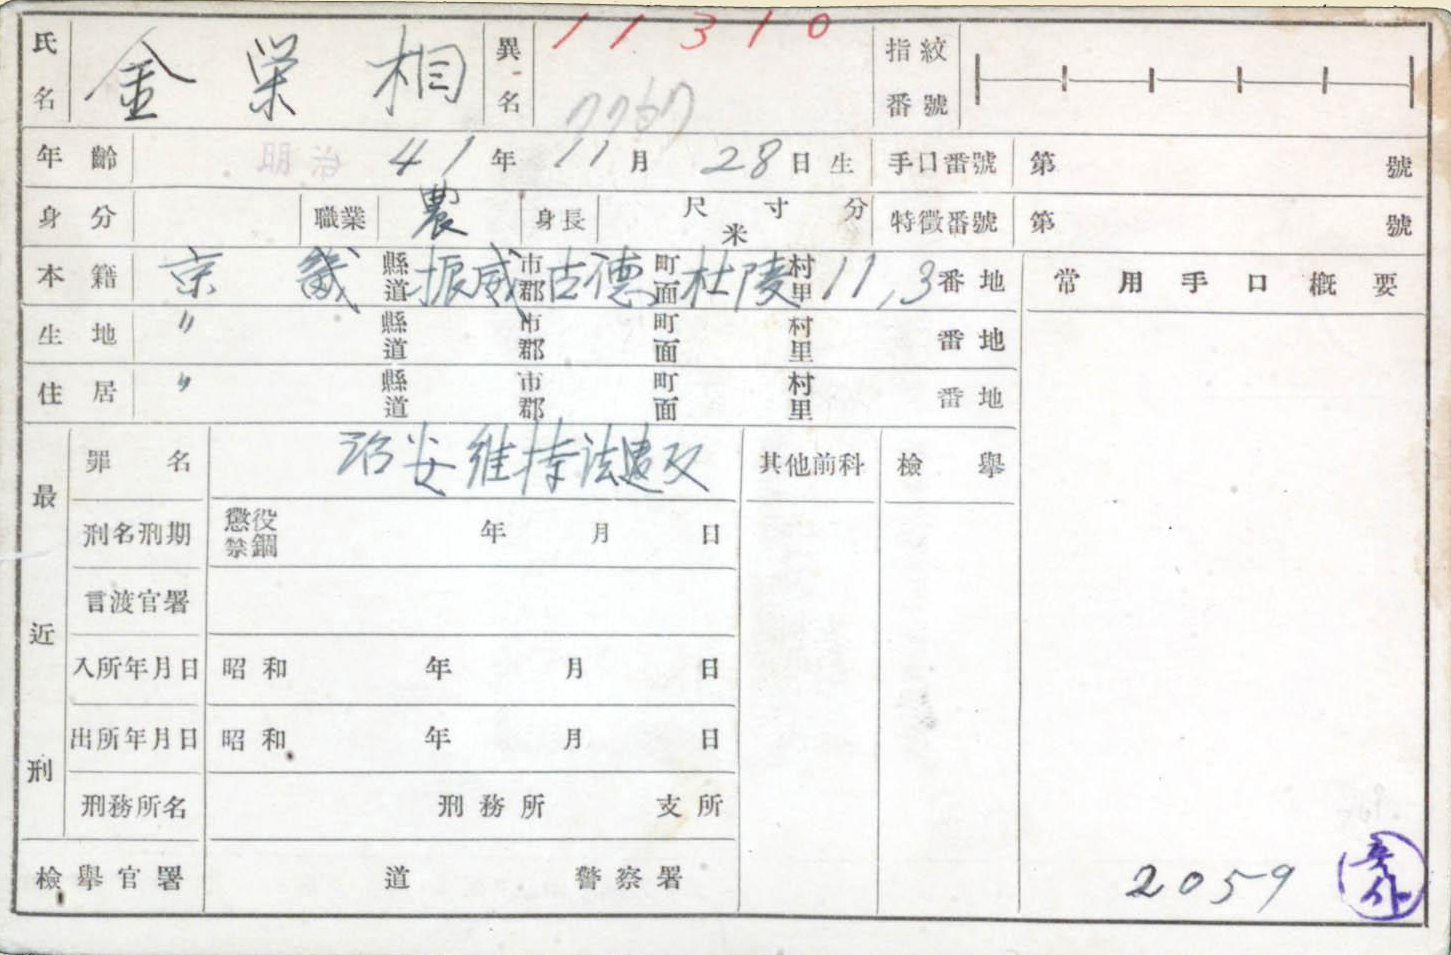 11310
氏名 金榮相 異名 指紋番號
年齡 41年11月28日生 手口番號 第 號
身分 職業 農 身長 尺寸分 米 特徵番號 第 號
本籍 京畿 縣道 振威 市郡 古德 町面 杜陵 村里 11,3 番地 常用手口槪要
生地 〃 縣道 市郡 町面 村里 番地
住居 〃 縣道 市郡 町面 村里 番地
最近刑
罪名 治安維持法違反 其他前科 檢擧
刑名刑期 懲役 禁錮 年 月 日
言渡官署
入所年月日 昭和 年 月 日
出所年月日 昭和 年 月 日
刑務所名 刑務所 支所
檢擧官署 道 警察署
2059